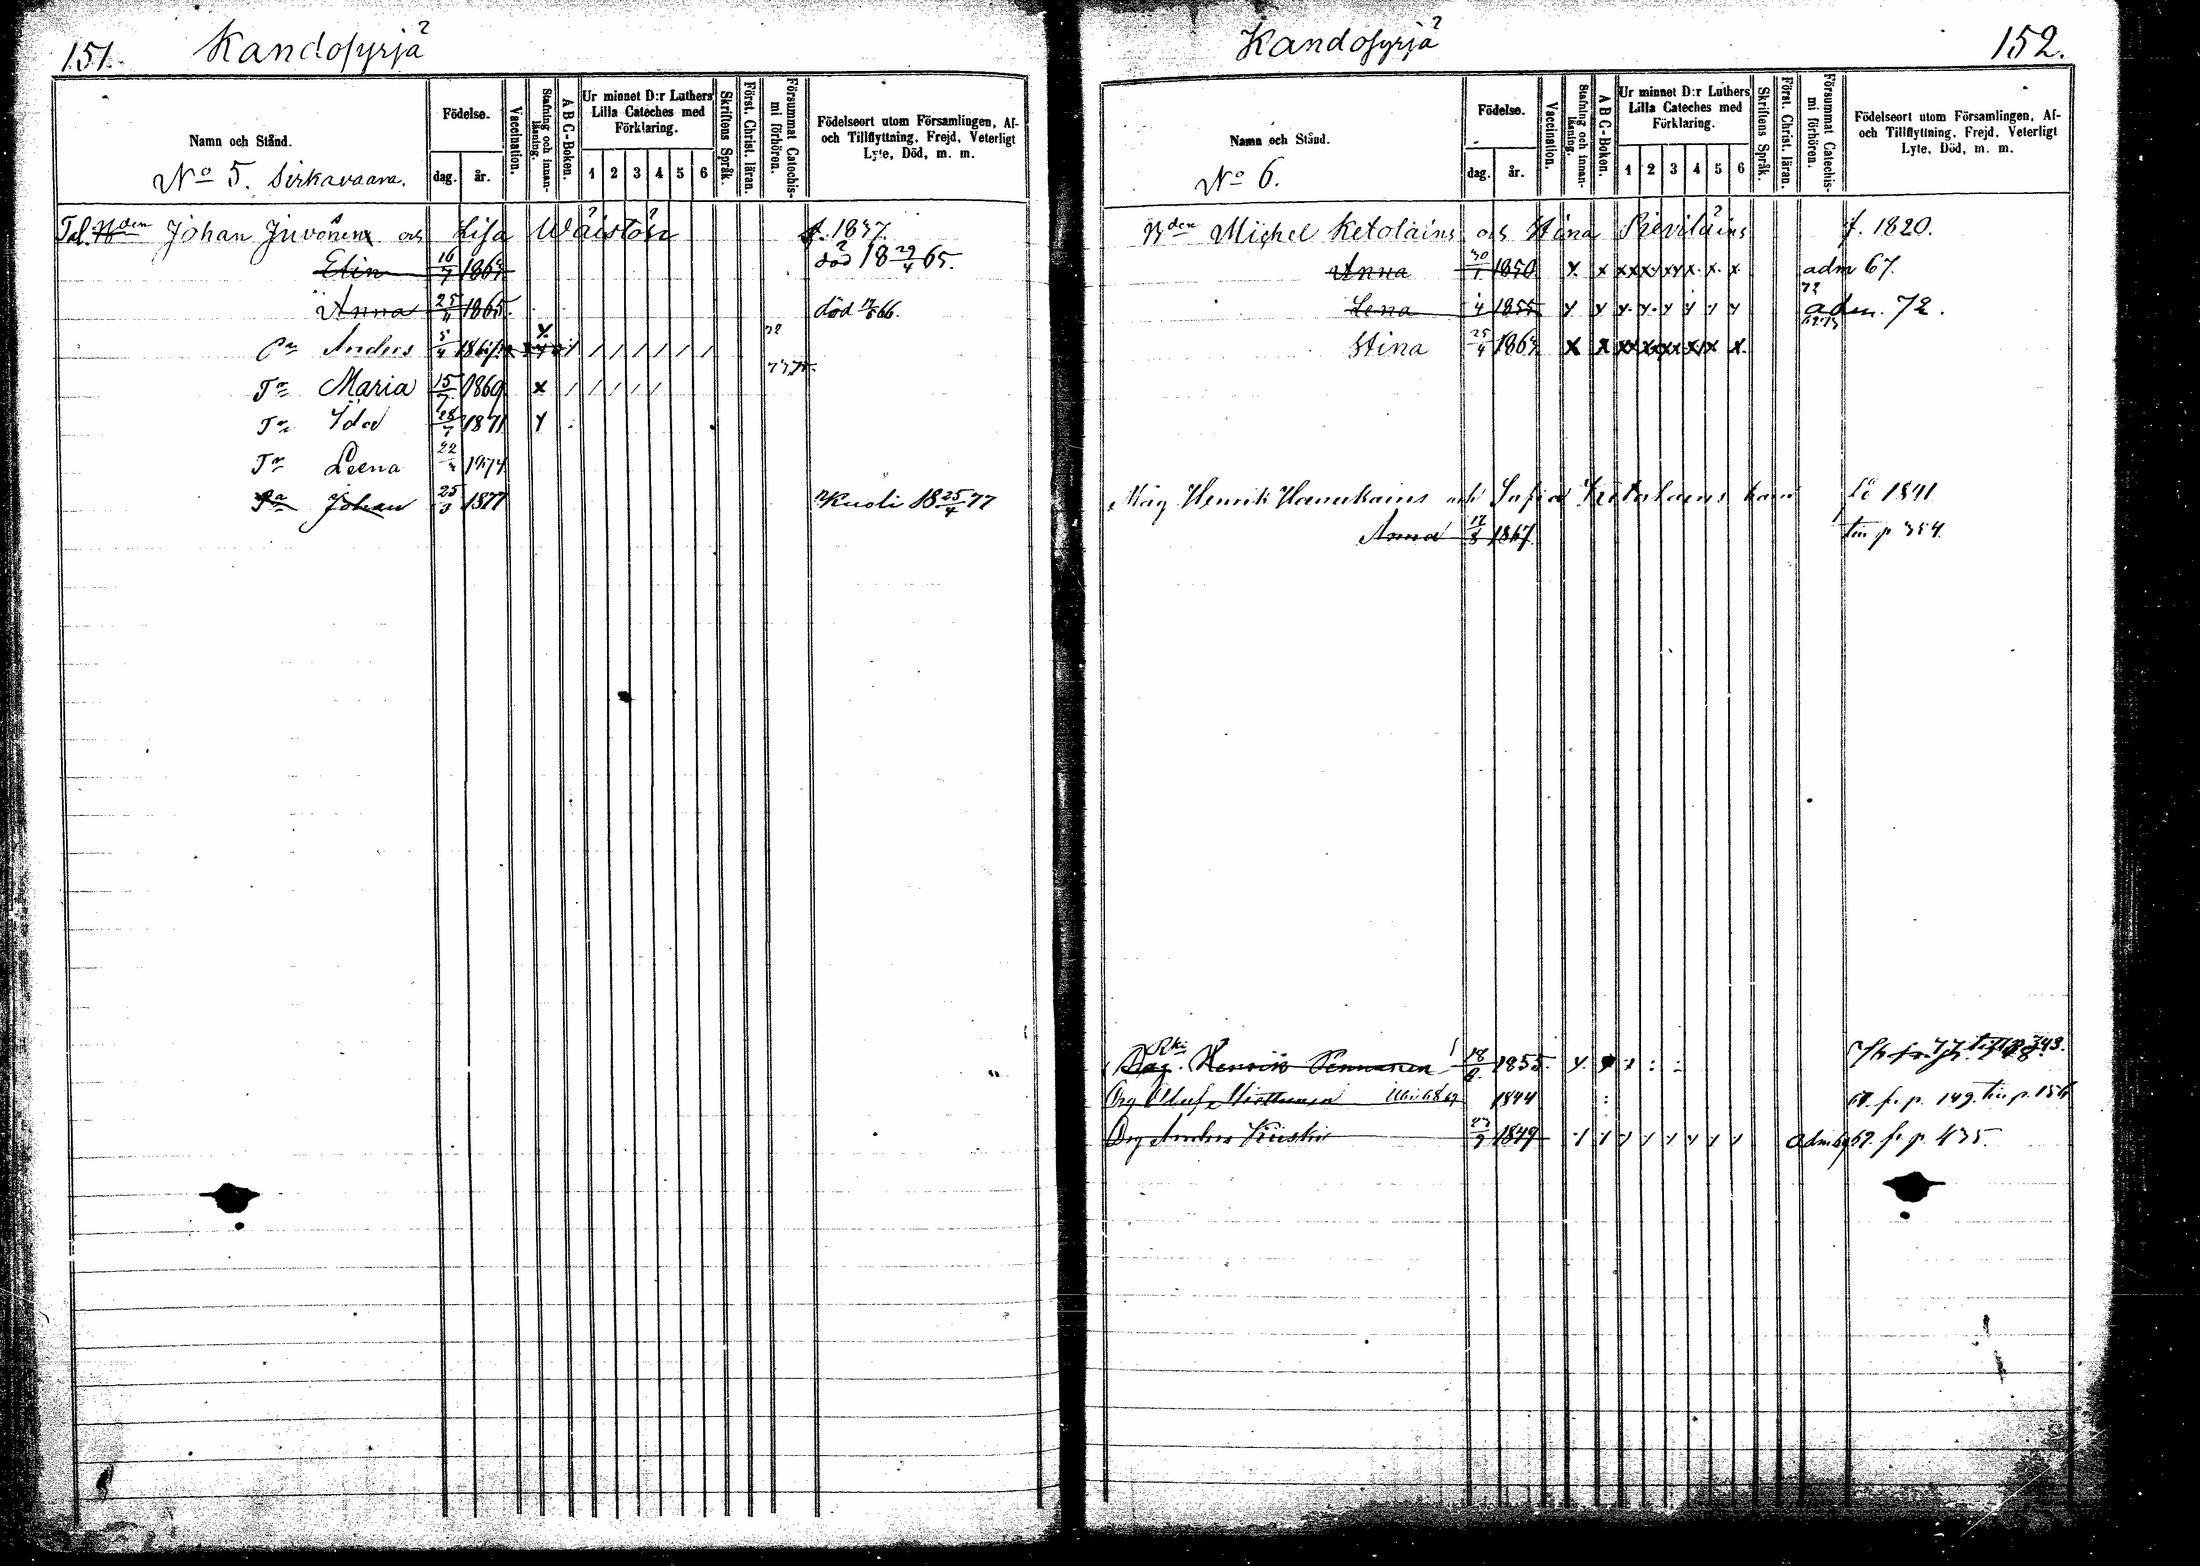 151. Kandosyrjä
Namn och Stånd.
Födelse.
dag. år.
Vaccination.
Stafning och innan-läsning.
A B C-Boken.
Ur minnet D:r Luthers Lilla Cateches med Förklaring.
1 2 3 4 5 6
Skriftens Språk.
Först. Christ. läran.
Försummat Catechis-mi förhören.
Födelseort utom Församlingen, Af- och Tillflyttning, Frejd, Veterligt Lyte, Död, m. m.
No 5. Sirkavaara.
Tal. Johan Juvonen och Lisa Wäistön f. 1837.
Elin 16/7 1864 död 18 29/4 65.
Anna 1865. död 66.
Pn Anders 5/4 1867 72
Tr Maria 15/7 1869
Tr Ida 28/7 1871
Tr Leena 22 1874
Pa Johan 25/3 1877 Kuoli 18 25/4 77
Kandosyrjä 152.
Namn och Stånd.
Födelse.
dag. år.
Vaccination.
Stafning och innan-läsning.
A B C-Boken.
Ur minnet D:r Luthers Lilla Cateches med Förklaring.
1 2 3 4 5 6
Skriftens Språk.
Först. Christ. läran.
Försummat Catechis-mi förhören.
Födelseort utom Församlingen, Af- och Tillflyttning, Frejd, Veterligt Lyte, Död, m. m.
No 6.
Bden Michel Ketolains och Stina Sieviläins f. 1820.
Anna 30/1 1850 adm 67.
Lena 4 1855 adm. 72.
Stina 25/4 1864
Måg Henrik Hanukains och Sofia Ketolains 1841
Anna 17/8 1867 tin p 354.
Henrik Pennanen 18 1855.
Drg Oluf 1844 68. fr. p. 149. tin p. 156
Drg Anders 1849 adm 69 69. fr. p. 435.